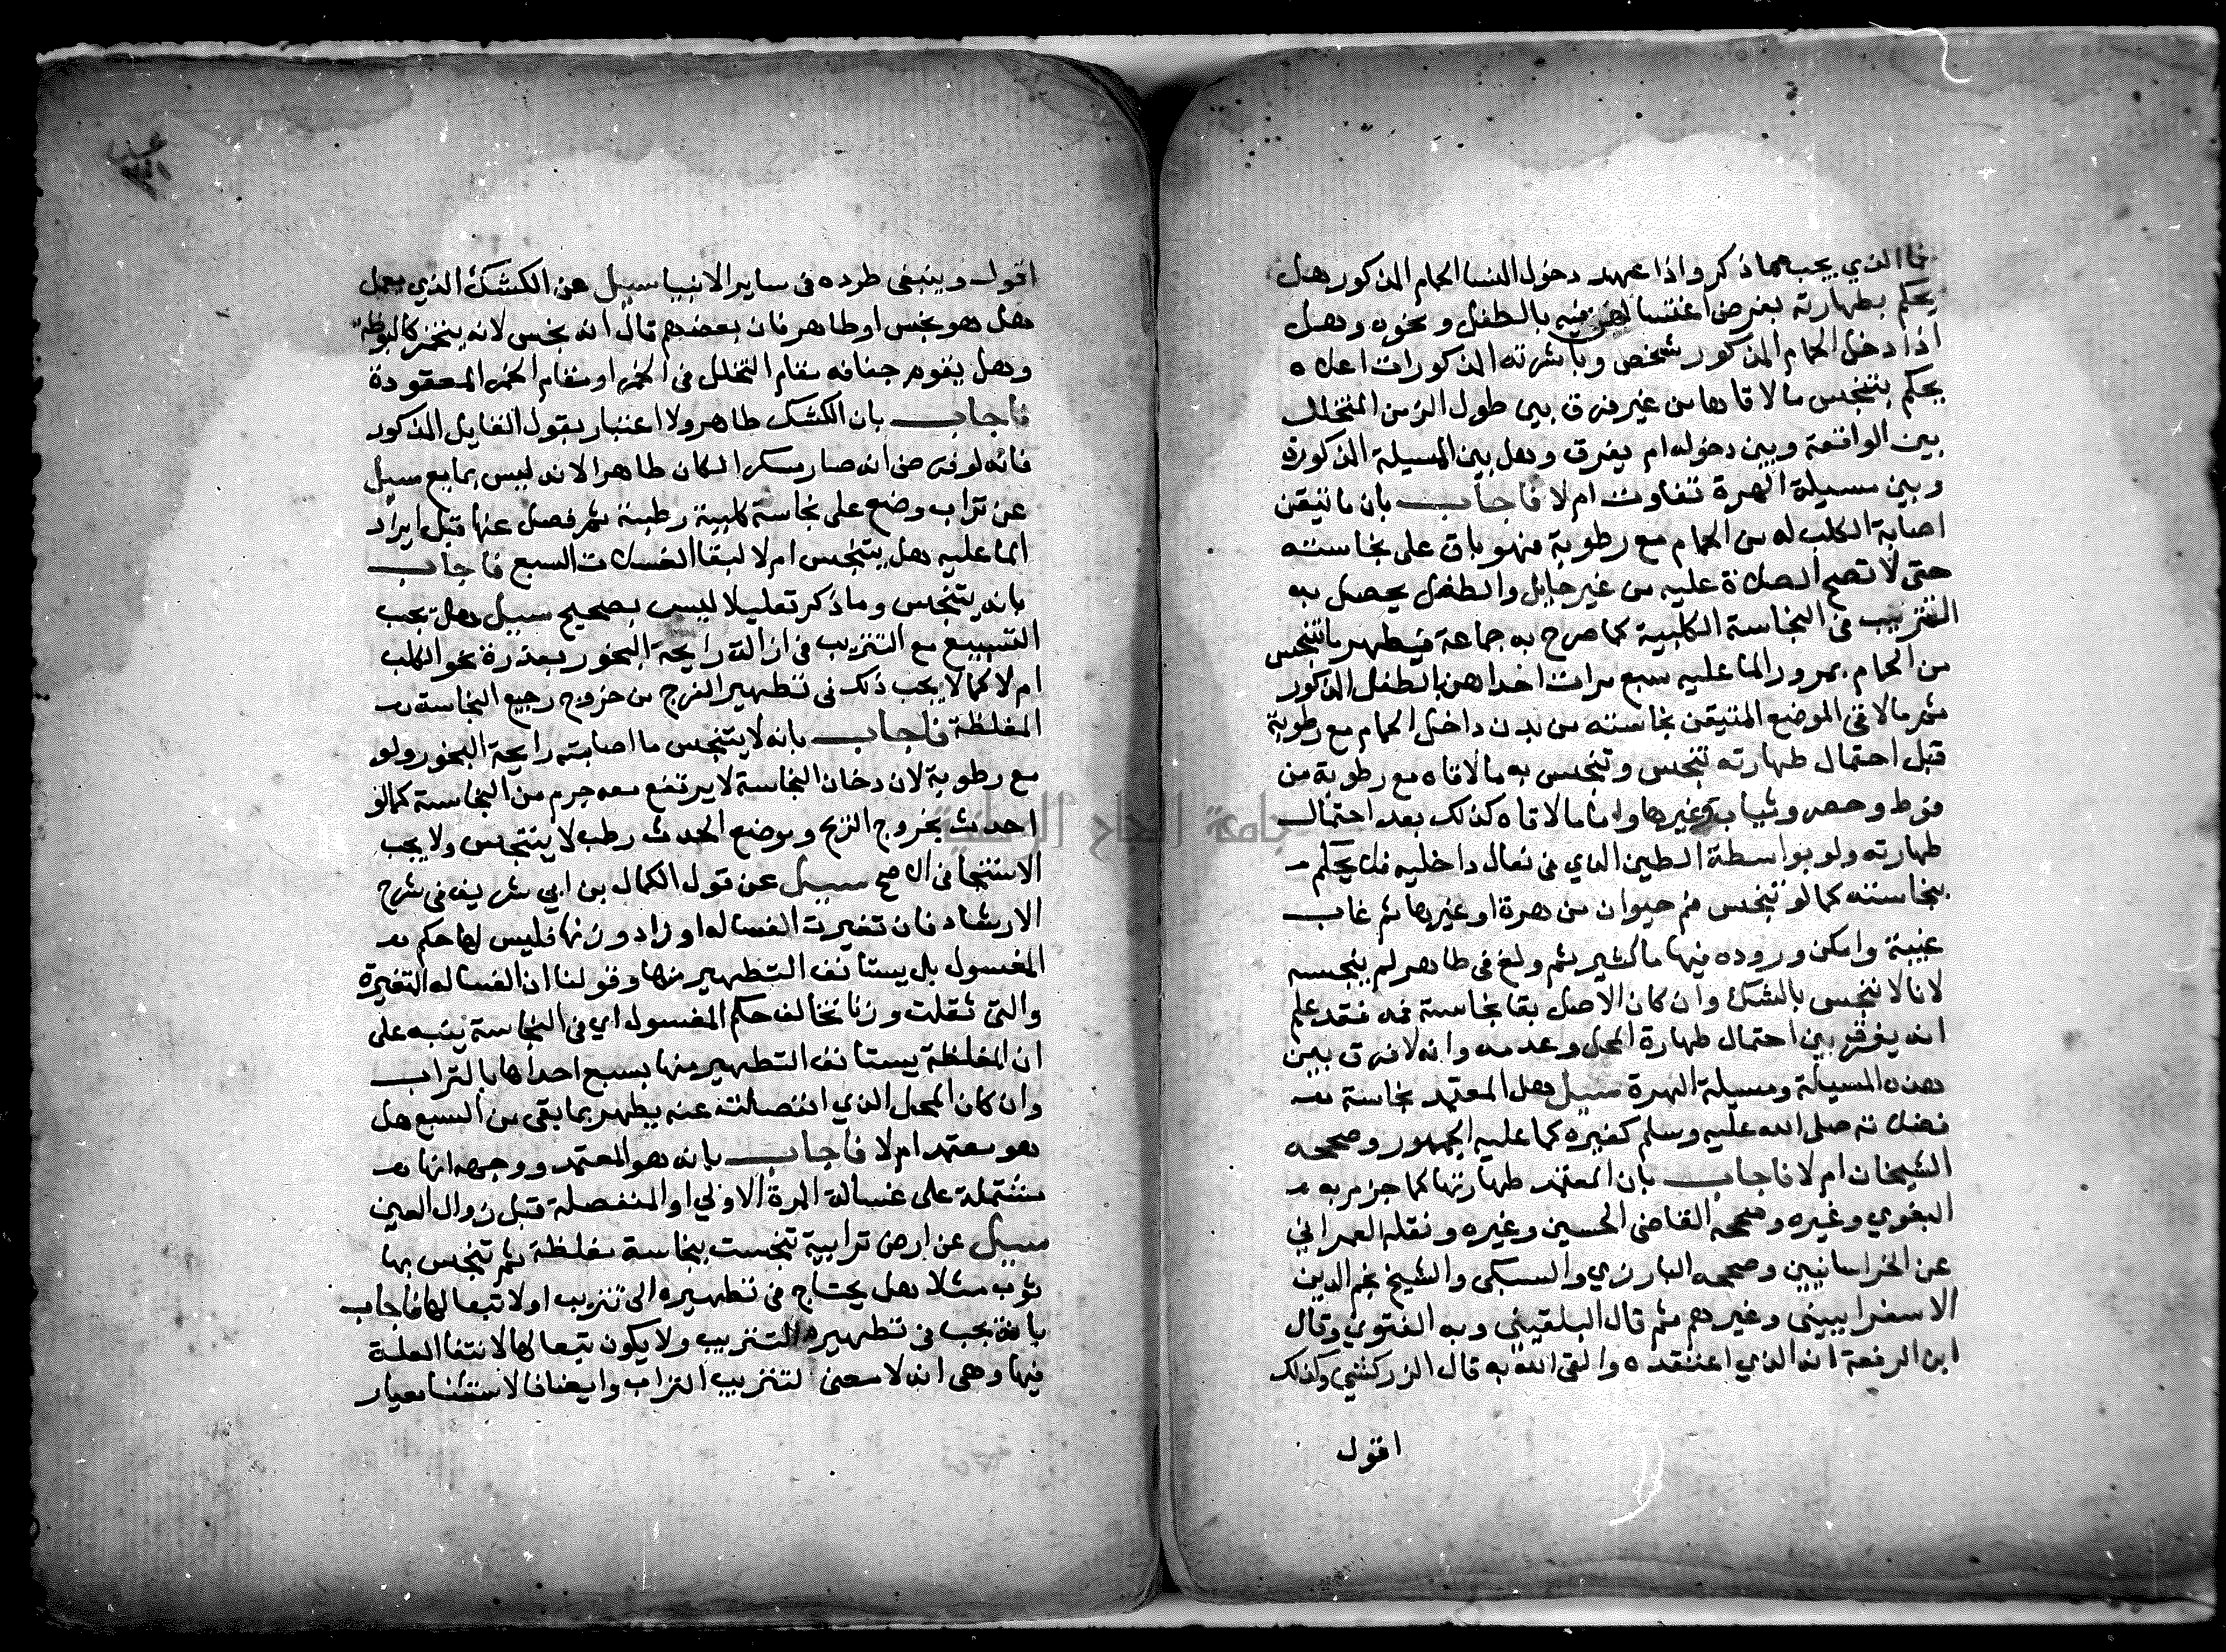 فما الذي يجب مما ذكر واذا عهد دخول النسا الحمام المذكور هل
يحكم بطهارته بفرض اغتسالهن فيه بالطفل ونحوه وهل
اذا دخل الحمام المذكور شخص وباشرته المذكورات اعلاه
يحكم بتنجس ما لاقاها من غير فرق بين طول الزمن المتخلل
بين الواقعة وبين دخوله ام يفرق وهل بين المسيلة المذكورة
وبين مسيلة الهرة تفاوت ام لا فاجاب بان ما تيقن
اصابة الكلب له من الحمام مع رطوبة فهو باق على نجاسته
حتى لا تصح الصلاة عليه من غير حايل والطفل يحصل به
التتريب في النجاسة الكلبية كما صرح به جماعة فيطهر ما تنجس
من الحمام بمرور الما عليه سبع مرات احداهن بالطفل المذكور
ثم ما لاقى الموضع المتيقن نجاسته من بدن داخل الحمام مع رطوبة
قبل احتمال طهارته تنجس وتنجس به ما لاقاه مع رطوبة من
فوط وحصر وثياب وغيرها واما ما لاقاه كذلك بعد احتمال
طهارته ولو بواسطة الطين الذي في نعال داخليه فلا يحكم
بنجاسته كما لو تنجس فم حيوان من هرة او غيرها ثم غاب
غيبة وامكن وروده فيها ما كثير ثم ولغ في طاهر لم ينجسه
لانا لا ننجس بالشك وان كان الاصل بقا نجاسة فمه فقد علم
انه يفرق بين احتمال طهارة المحل وعدمه وانه لا فرق بين
هذه المسيلة ومسيلة الهرة سيل هل المعتمد نجاسة
فضلاته صلى الله عليه وسلم كغيره كما عليه الجمهور وصححه
الشيخان ام لا فاجاب بان المعتمد طهارتها كما جزم به
البغوي وغيره وصححه القاضي الحسين وغيره ونقله العمراني
عن الخراسانيين وصححه البارزي والسبكي والشيخ نجم الدين
الاسفراييني وغيرهم ثم قال البلقيني وبه الفتوى وقال
ابن الرفعة انه الذي اعتقده والقى الله به قال الزركشي وكذلك
اقول
اقول وينبغي طرده في ساير الانبيا سيل عن الكشك الذي يعمل
هل هو نجس او طاهر فان بعضهم قال انه نجس لانه يتخمر كالبوظة
وهل يقوم جفافه مقام التخلل في الخمر او مقام الخمر المعقودة
فاجاب بان الكشك طاهر ولا اعتبار بقول القايل المذكور
فانه لو فرض انه صار مسكرا لكان طاهرا لانه ليس بمايع سيل
عن تراب وضع على نجاسة كلبية رطبة ثم فصل عنها قبل ايراد
الما عليه هل يتنجس ام لا لبقا الغسلات السبع فاجاب
بانه يتنجس وما ذكر تعليلا ليس بصحيح سيل هل يجب
التسبيع مع التتريب في ازالة رايحة البخور بعذرة نحو الكلب
ام لا كما لا يجب ذلك في تطهير الفرج من خروج رجيع النجاسة
المغلظة فاجاب بانه لا يتنجس ما اصابته رايحة البخور ولو
مع رطوبة لان دخان النجاسة لا يرتفع معه جرم من النجاسة كما لو
احدث بخروج الريح وموضع الحدث رطب لا يتنجس ولا يجب
الاستنجا في الاصح سيل عن قول الكمال بن ابي شريف في شرح
الارشاد فان تغيرت الغسالة او زاد وزنها فليس لها حكم
المغسول بل يستانف التطهير منها وقولنا ان الغسالة المتغيرة
والتي ثقلت وزنا تخالف حكم المغسول اي في النجاسة ينبه على
ان المغلظة يستانف التطهير منها بسبع احداها بالتراب
وان كان المحل الذي انفصلت عنه يطهر بما بقي من السبع هل
هو معتمد ام لا فاجاب بانه هو المعتمد ووجهه انها
مشتملة على غسالة المرة الاولى او المنفصلة قبل زوال العين
سيل عن ارض ترابية تنجست بنجاسة مغلظة ثم تنجس بها
ثوب مثلا هل يحتاج في تطهيره الى تتريب او لا تبعا لها فاجاب
بانه يجب في تطهيره التتريب ولا يكون تبعا لها لانتفا العلة
فيها وهي انه لا معنى لتتريب التراب وايضا فالاستثنا معيار